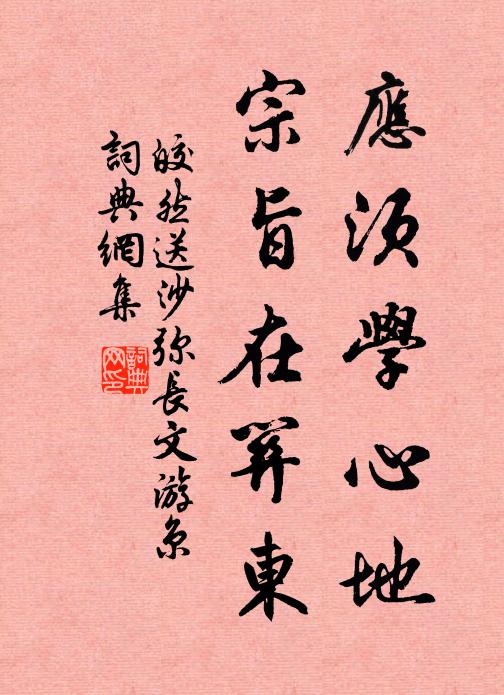 應須學心地
宗旨在關東
皎然送沙弥長文游京
詞典網集
詞典網印